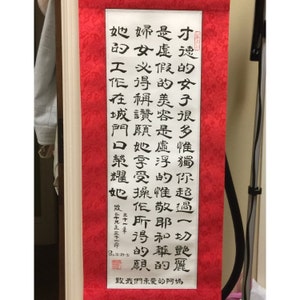 才德的女子很多惟獨你超過一切艷麗
是虛假的美容是虛浮的惟敬耶和華的
婦女必得稱讚願她享受操作所得的願
她的工作在城門口榮耀她
致我們親愛的阿媽